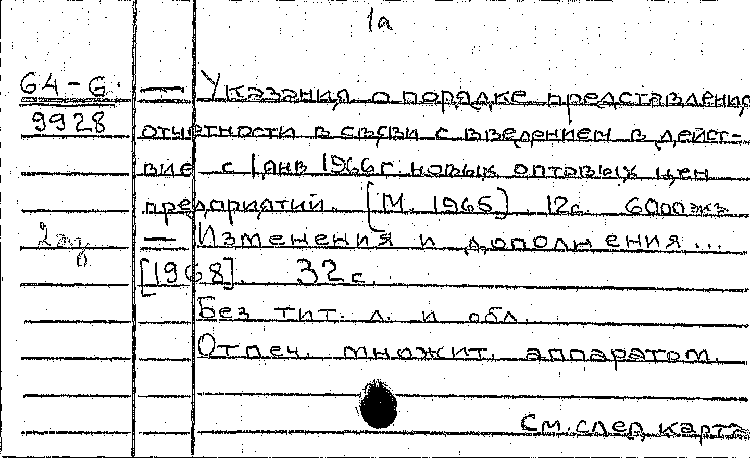 1а
64-6. — Указания о порядке представления
9928 отчетности в связи с введением в дейст-
вие с 1 янв 1966 г. новых оптовых цен
предприятий. [М. 1965] 12с. 6000экз
2 экз — Изменения и дополнения...
[1968]. 32 с.
Без тит. л. и обл.
Отпеч. множит. аппаратом.
См. след. карт